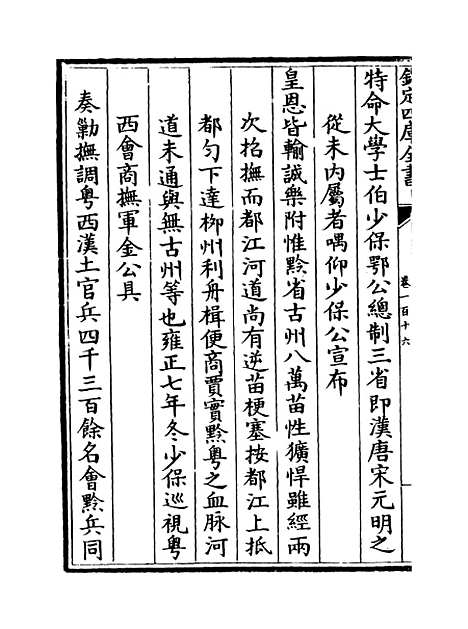 欽定四庫全書
卷一百十六
特命大學士伯少保鄂公總制三省即漢唐宋元明之
從未内屬者喁仰少保公宣布
皇恩皆輸誠樂附惟黔省古州八萬苗性獷悍雖經兩
次招撫而都江河道尚有逆苗梗塞按都江上抵
都勻下達柳州利舟楫便商賈實黔粤之血脉河
道未通與無古州等也雍正七年冬少保巡視粤
西會商撫軍金公具
奏勦撫調粤西漢土官兵四千三百餘名會黔兵同